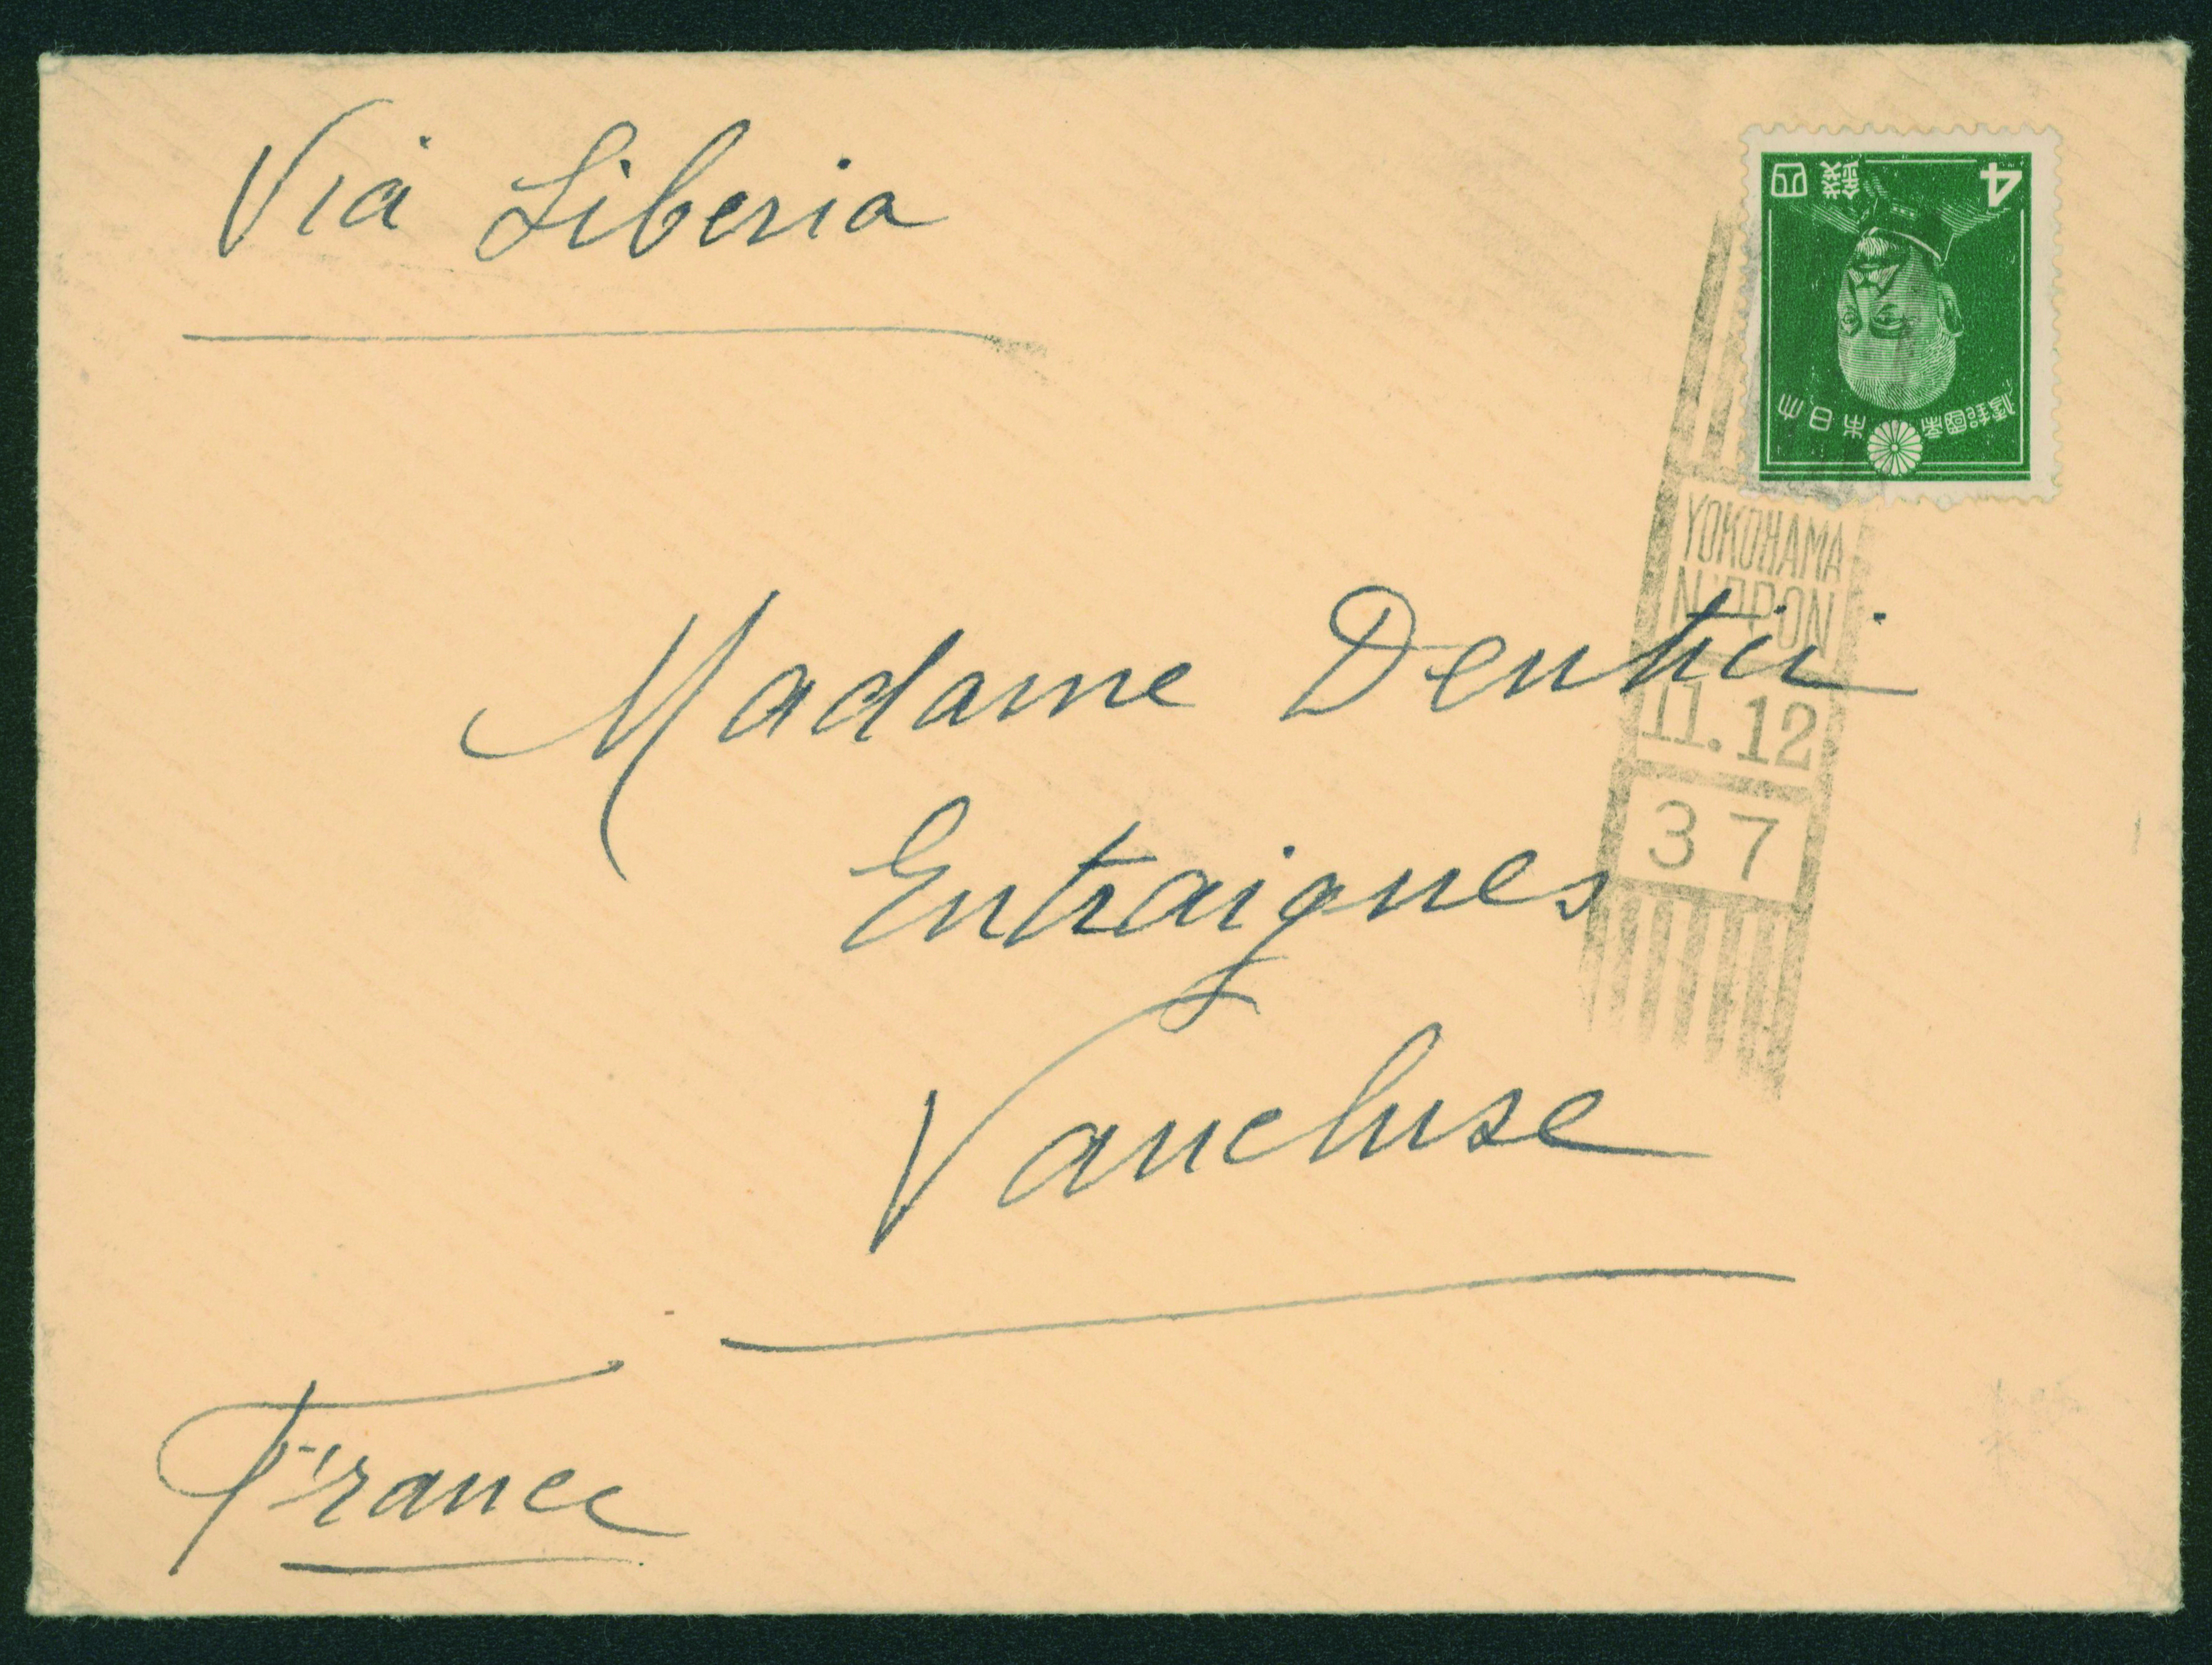 Via Siberia
4
四錢
大日本帝國郵便
YOKOHAMA
NIPPON
11.12
37
Madame
Entraigues
Vaucluse
France